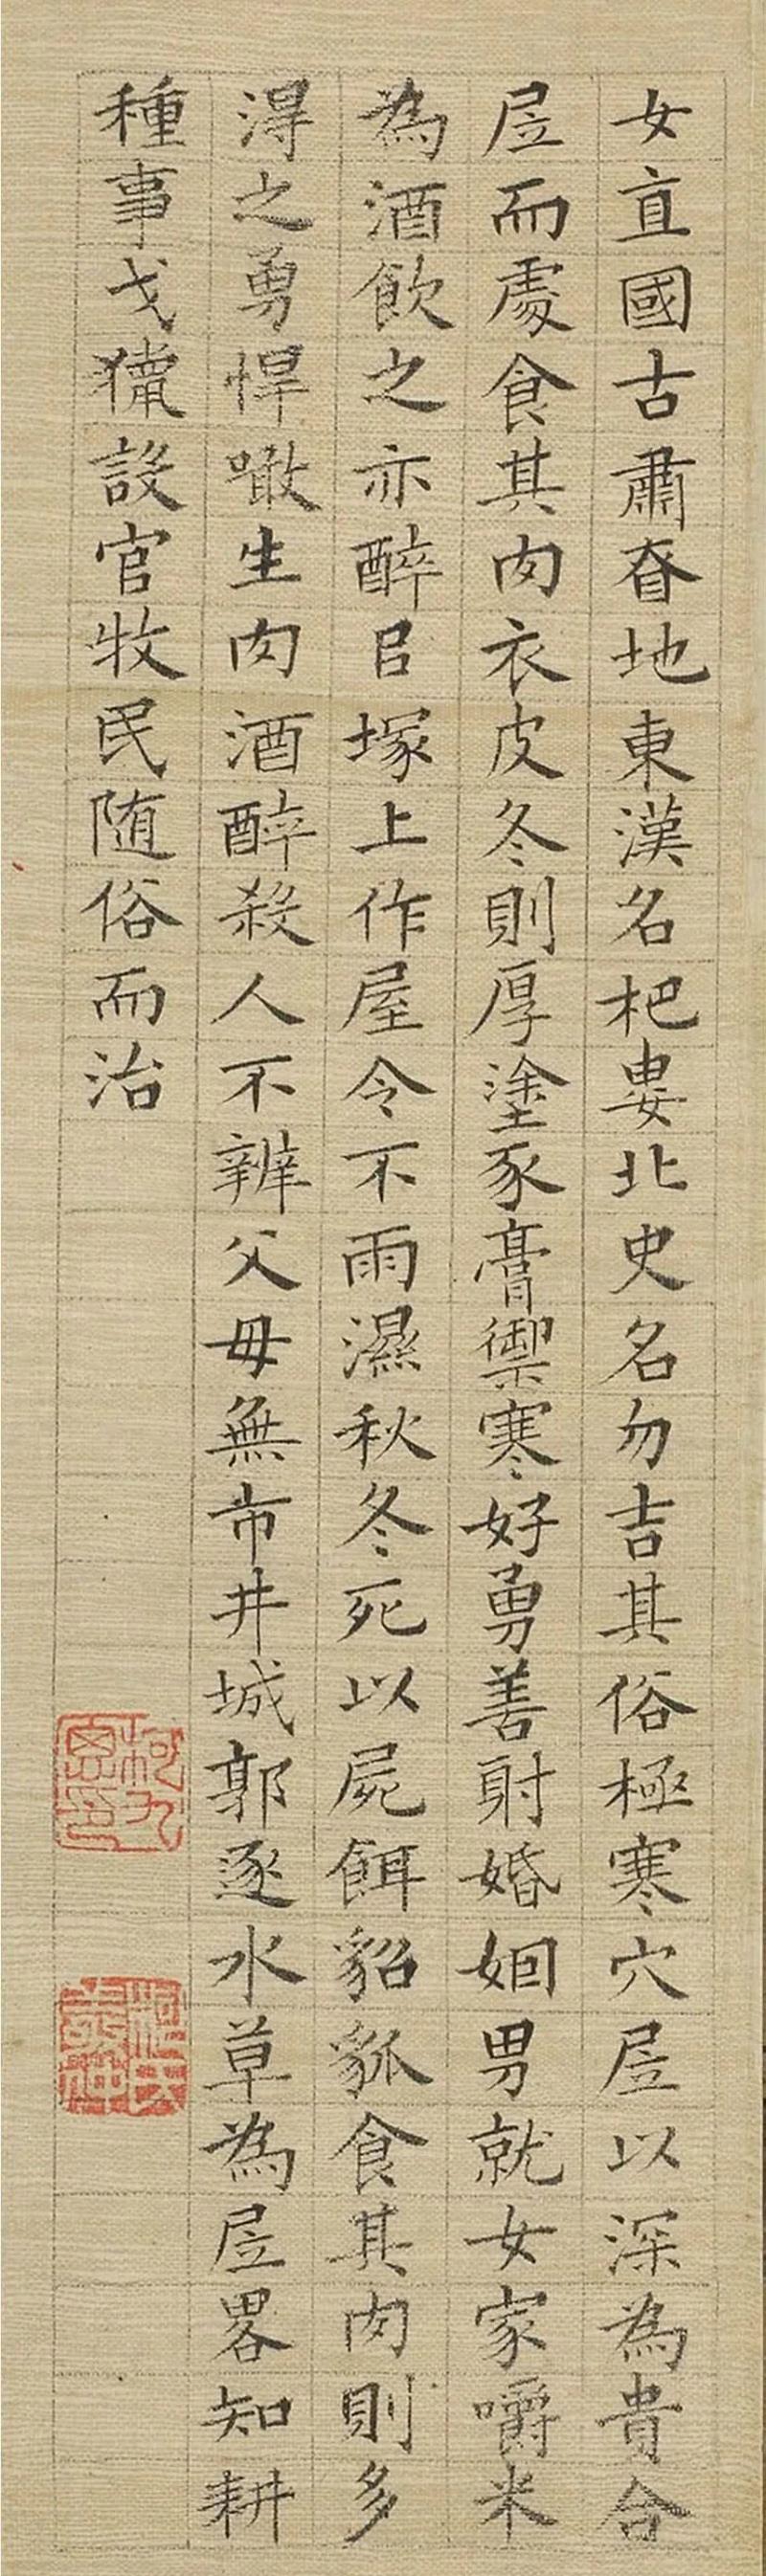 女直國古肅昚地東漢名杷婁北史名勿吉其俗極寒穴𡱈以深為貴合
𡱈而處食其肉衣皮冬則厚塗豕膏禦寒好勇善射婚姻男就女家嚼米
為酒飲之亦醉㠯塚上作屋令不雨濕秋冬死以屍餌貂狐食其肉則多
淂之勇悍噉生肉酒醉殺人不辨父母無市井城郭逐水草為𡱈畧知耕
種事弋獵設官牧民随俗而治
柯九思印